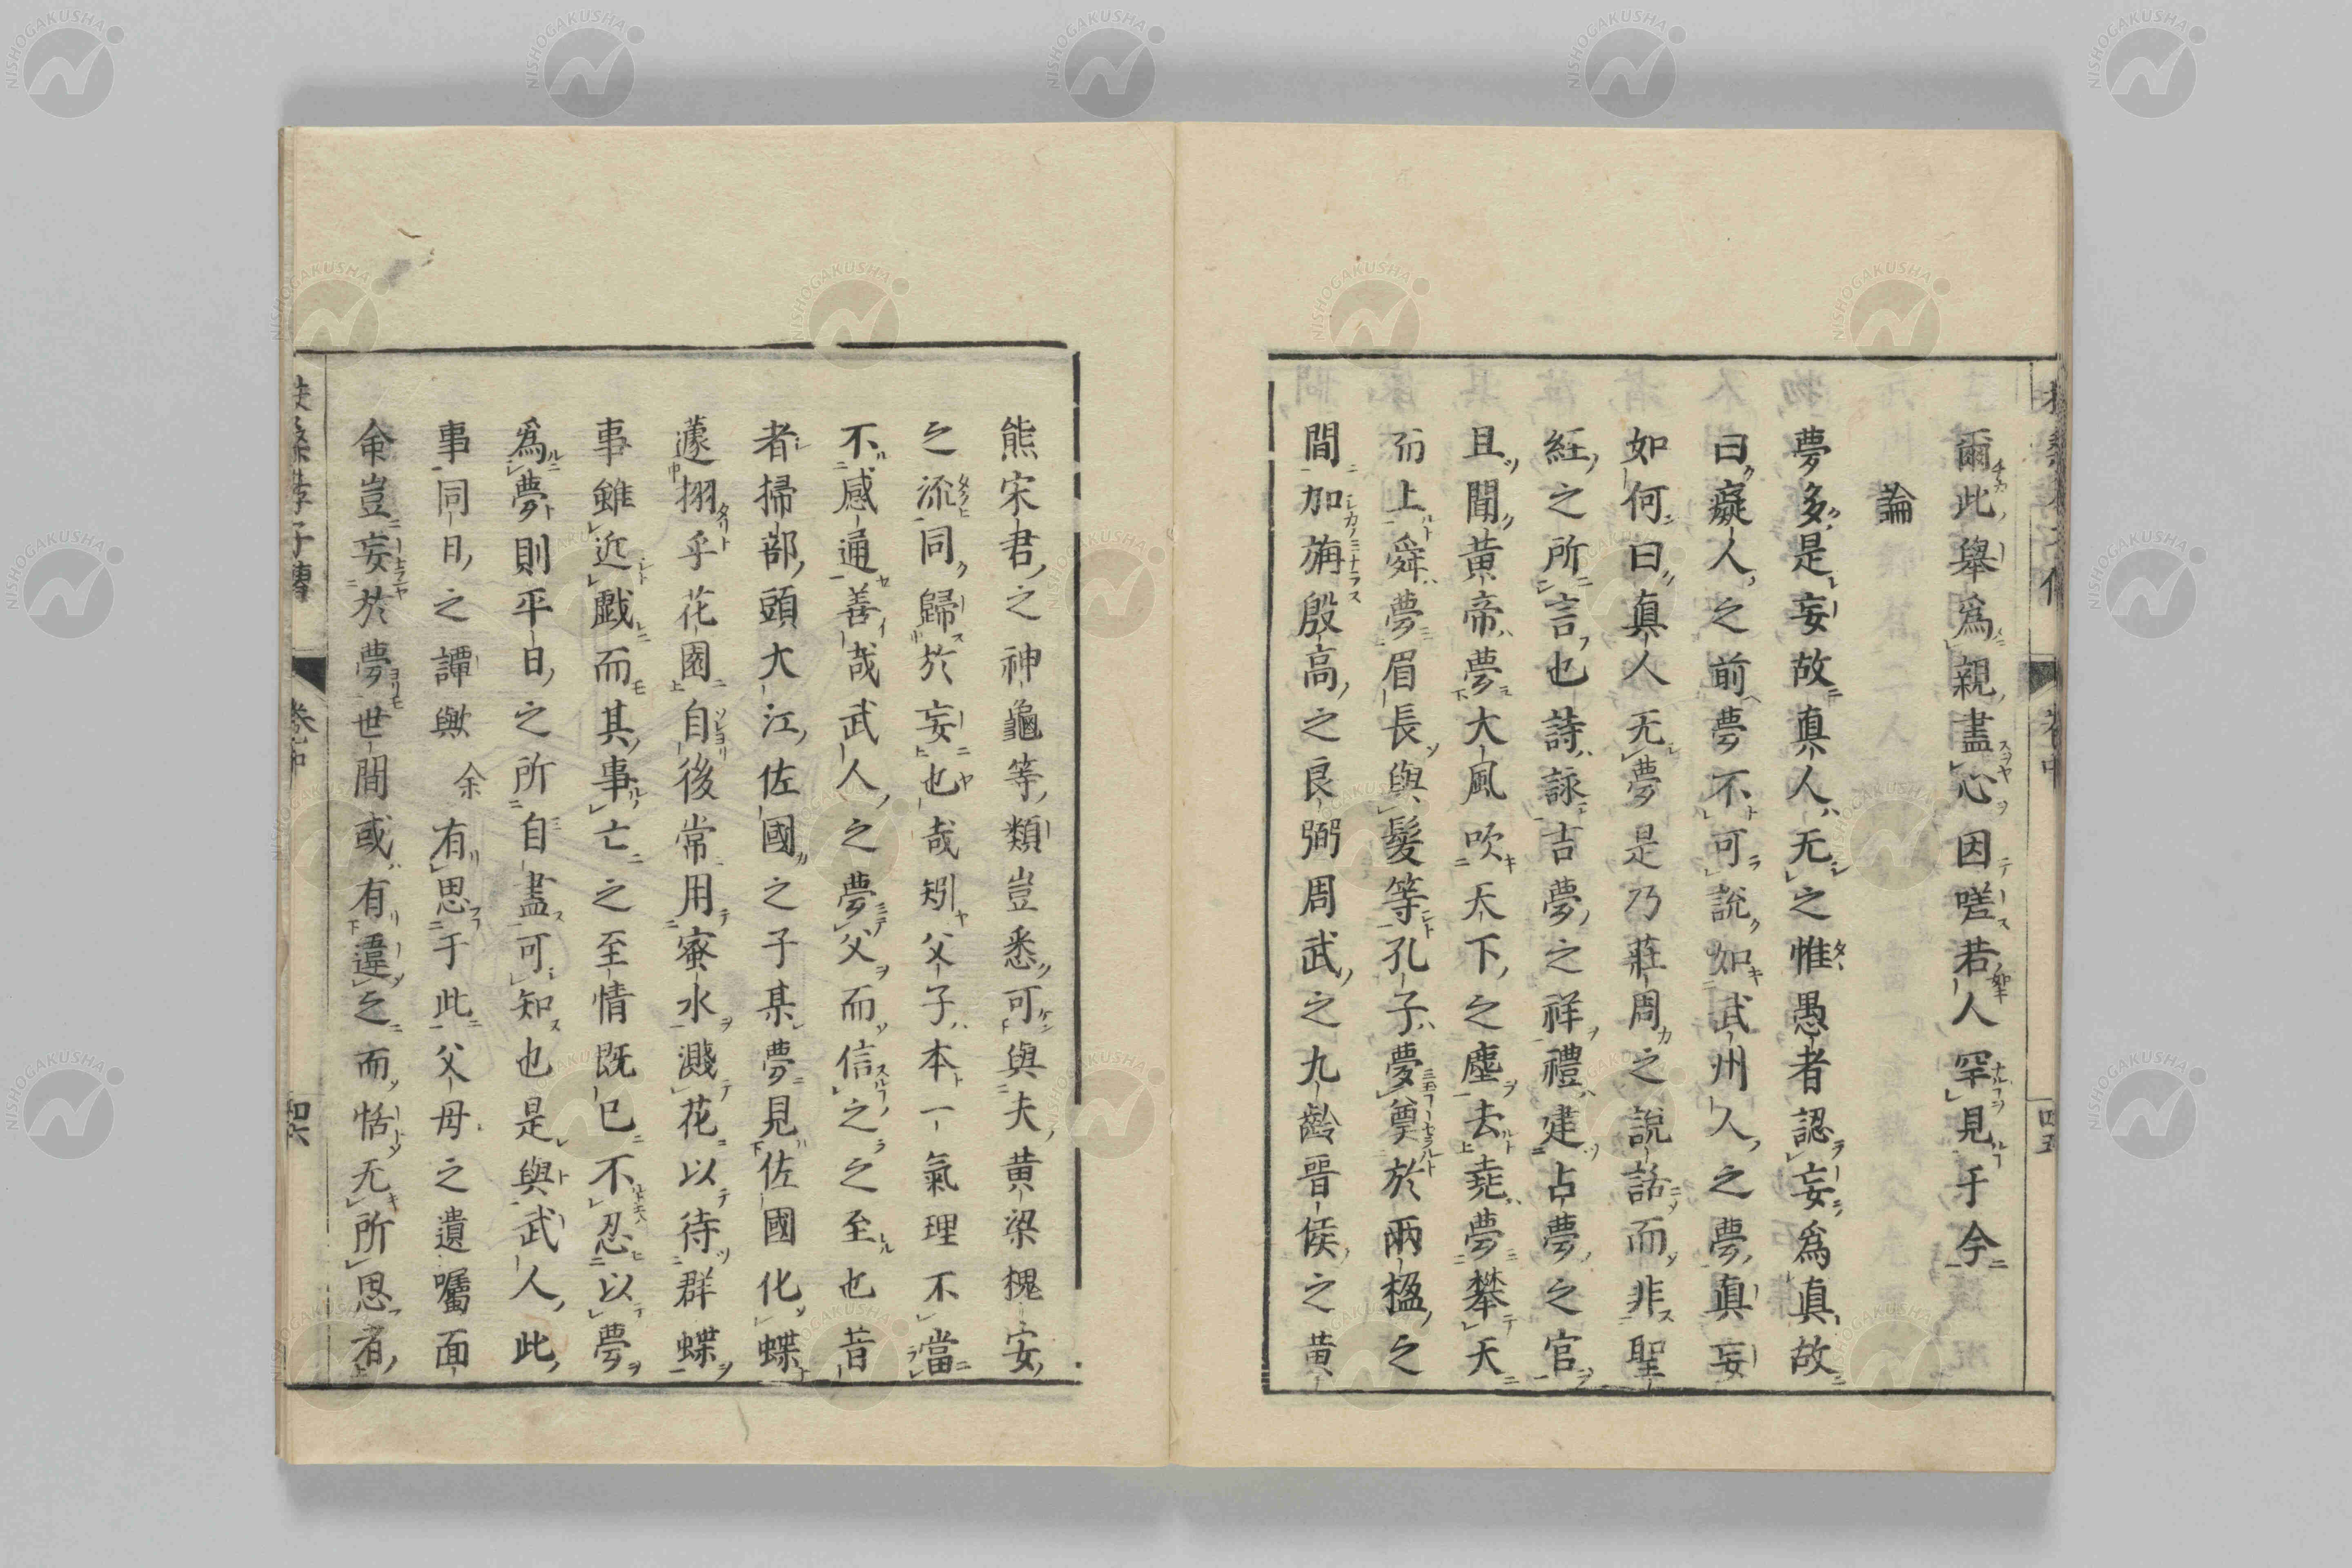 爾此舉爲親盡心因嗟若人罕見于今
論
夢多是妄故眞人无之惟愚者認妄爲眞故
曰癡人之前夢不可說如武州人之夢眞妄
如何曰眞人无夢是乃莊周之說話而非聖
經之所言也詩詠吉夢之祥禮建占夢之官
且聞黃帝夢大風吹天下之塵去堯夢攀天
而上舜夢眉長與髮等孔子夢奠於兩楹之
間加旃殷高之良弼周武之九齡晉侯之黃
熊宋君之神龜等類豈悉可與夫黃梁槐安
之流同歸於妄也哉矧父子本一氣理不當
不感通善哉武人之夢父而信之之至也昔
者掃部頭大江佐國之子某夢見佐國化蝶
蘧栩乎花園自後常用蜜水濺花以待群蝶
事雖近戲而其事亡之至情既已不忍以夢
爲夢則平日之所自盡可知也是與武人此
事同日之譚歟余有思于此父母之遺囑面
命豈妄於夢世間或有違之而恬无所思者
扶桑孝子傳 卷中 四五
扶桑孝子傳 卷中 四六
NISHOGAKUSHA